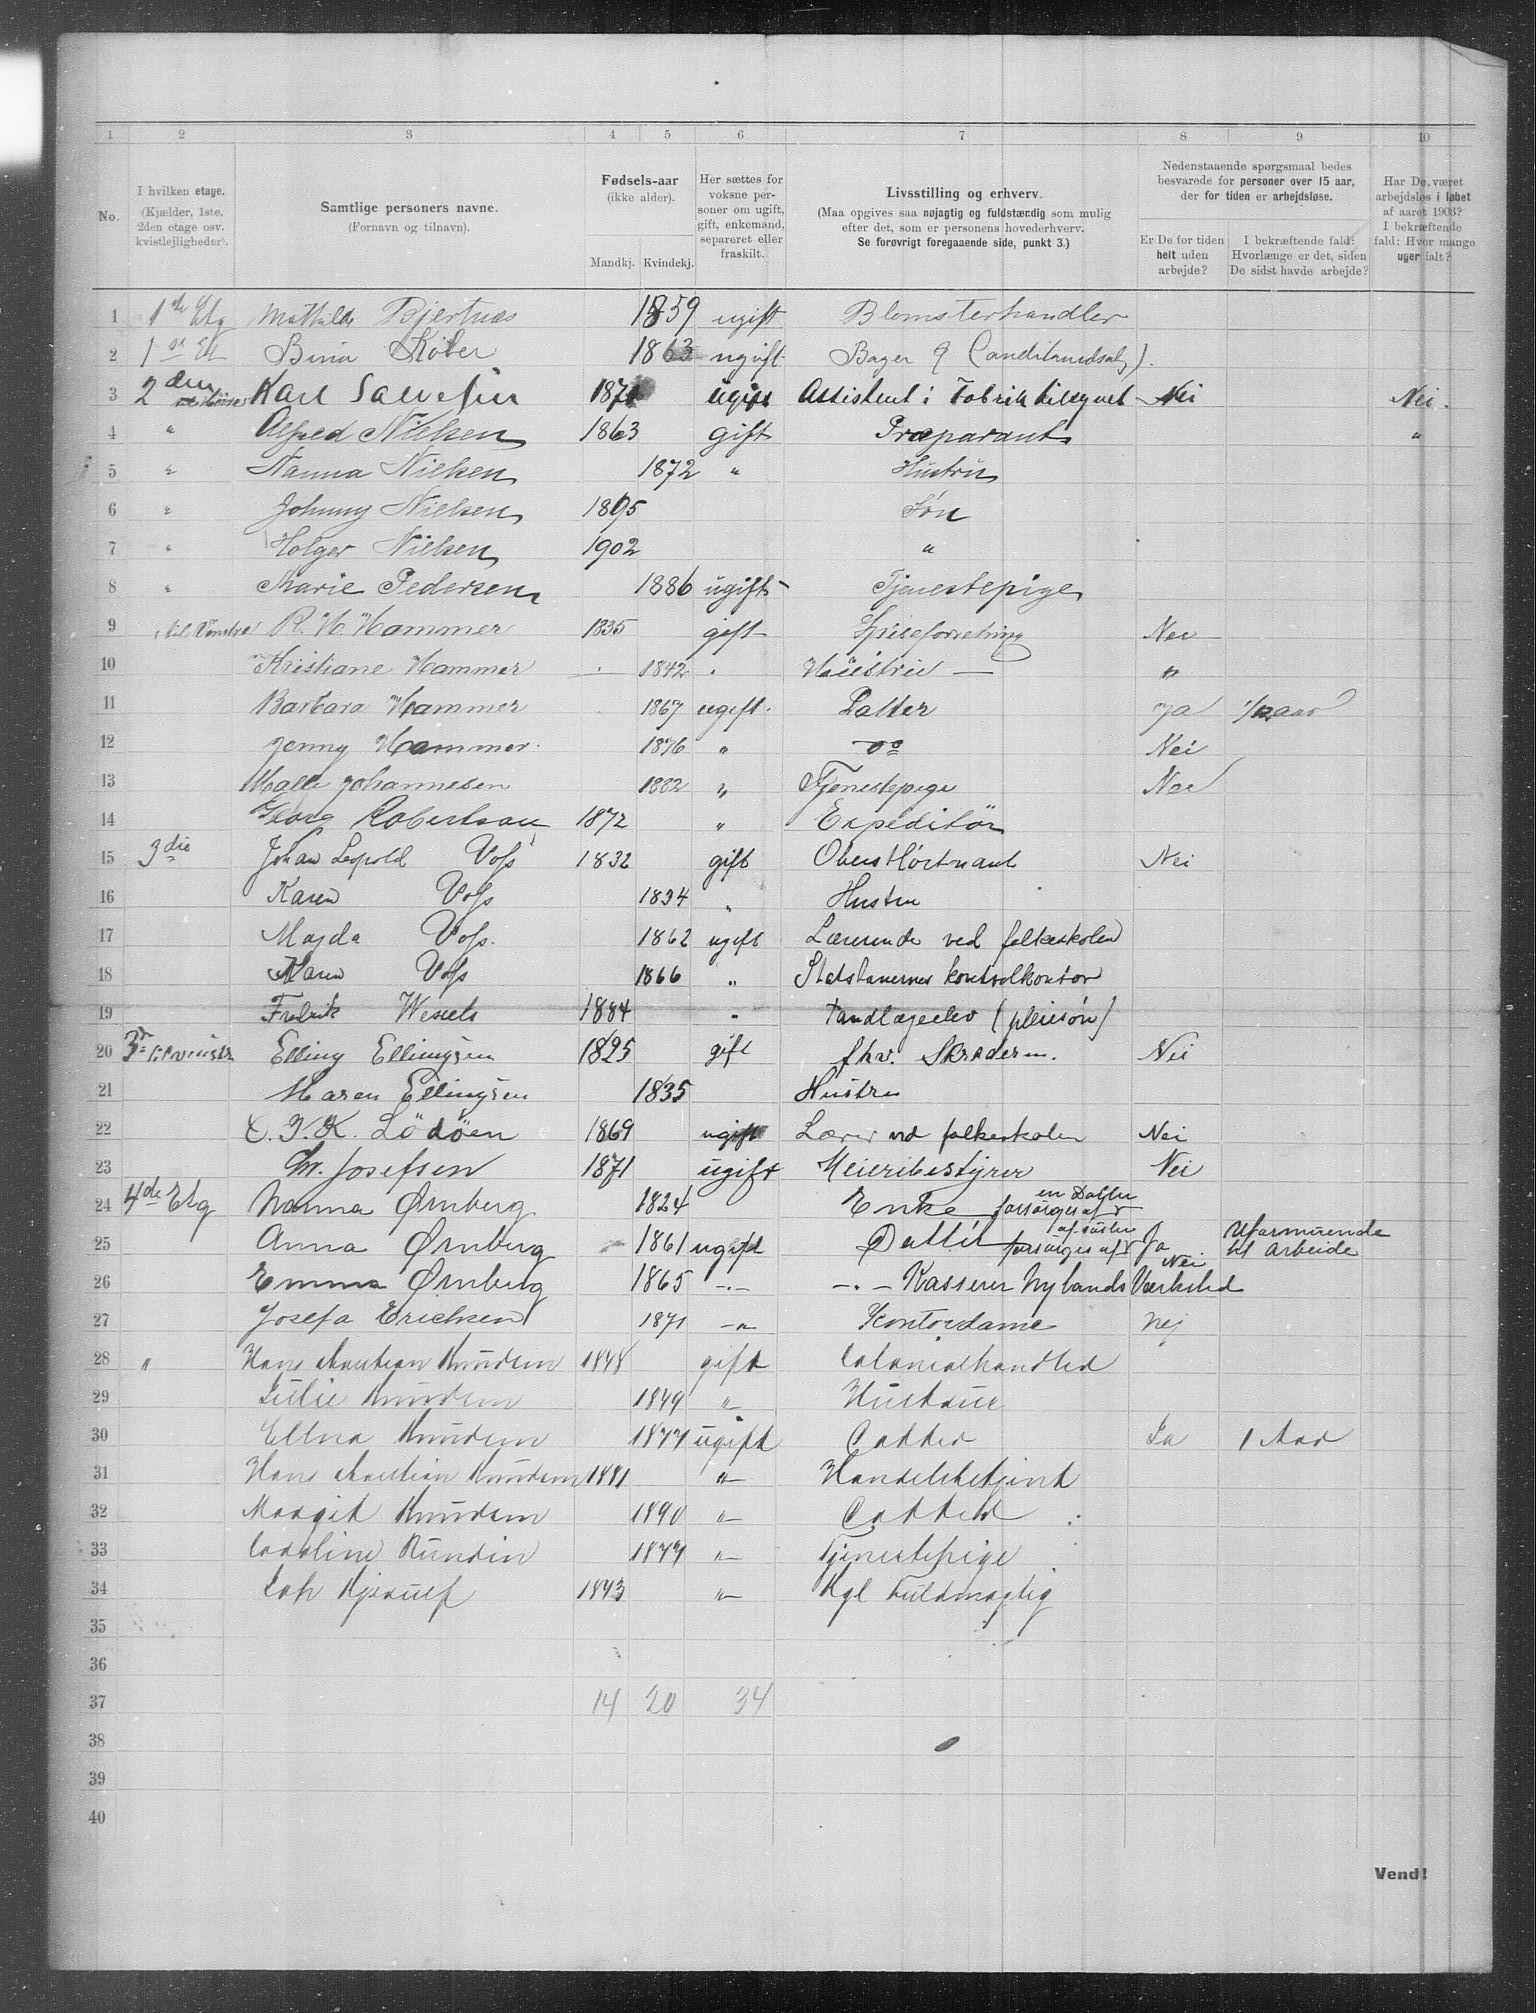 1 2 3 4 5 6 7 8 9 10
No.
I hvilken etage.
(Kjælder, 1ste, 2den etage osv. kvistlejligheder).
Samtlige personers navne.
(Fornavn og tilnavn).
Fødsels-aar
(ikke alder).
Mandkj. Kvindekj.
Her sættes for voksne personer om ugift, gift, enkemand, separeret eller fraskilt.
Livsstilling og erhverv.
(Maa opgives saa nøjagtig og fuldstændig som mulig efter det, som er personens hovederhverv.
Se forøvrigt foregaaende side, punkt 3.)
Nedenstaaende spørgsmaal bedes besvarede for personer over 15 aar, der for tiden er arbejdsløse.
Er De for tiden helt uden arbejde?
I bekræftende fald: Hvorlænge er det, siden De sidst havde arbejde?
Har De været arbejdsløs i løbet af aaret 1903? I bekræftende fald: Hvor mange uger ialt?
1 1ste Etg Mathilde Bjertnæs 1859 ugift Blomsterhandler
2 1ste Et Køber 1863 ugift Bager & Conditoriudsalg).
3 2den Karl Salvesen 1871 ugift Assistent i Fabriktilsynet Nei Nei.
4 " Alfred Nielsen 1863 gift Præparant "
5 " Nanna Nielsen 1872 " Hustru
6 " Johnny Nielsen 1895 Søn
7 " Holger Nielsen 1902 "
8 " Marie Pedersen 1886 ugift Tjenestepige
9 til Venstre R. H. Hammer 1835 gift Spiseforretning Nei
10 Kristiane Hammer 1842 " Hustru — "
11 Barbara Hammer 1867 ugift. Datter Ja 1/2 aar
12 Jenny Hammer. 1876 " do Nei
13 Malle Johannesen 1882 " Tjenestepige Nei
14 Georg Robertson 1872 " Expeditør
15 3die Johan Leopold Voss 1832 gift Oberstløitnant Nei
16 Karen Voss 1834 " Hustru
17 Magda Voss. 1862 ugift Lærerinde ved folkeskolen
18 Karen Voss 1866 " Statsbanernes kontrolkontor
19 Fredrik Wessels 1884 " tandlægeelev (pleiesøn)
20 3die til venstre Elling Ellingsen 1825 gift fhv. Skræderm. Nei
21 Maren Ellingsen 1835 Hustru
22 O. J. K. Lödöen 1869 ugift Lærer ved folkeskolen Nei
23 Chr. Josefsen 1871 ugift Meieribestyrer Nei
24 4de Etg Nanna Ørnberg 1824 Enke forsørges af en Datter
25 Anna Ørnberg 1861 ugift Datter forsørges af søster Ja Uformuende til Arbeide
26 Emma Ørnberg 1865 -"- -"- Kasserer Nylands Værksted Nei
27 Josefa Erichsen 1871 -"- Kontordame Nej
28 " Hans Christian Knudsen 1848 gift Colonialhandler
29 Julie Knudsen 1849 " Hustrue
30 Ellna Knudsen 1877 ugift Datter Ja 1 Aar
31 Hans Christian Knudsen 1881 " Handelsbetjent
32 Margit Knudsen 1890 " Datter
33 Caroline Rundin 1877 " Tjenestepige
34 Kjerulf 1843 " Kgl Fuldmægtig
35
36
37 14 20 34
38
39
40
Vend!